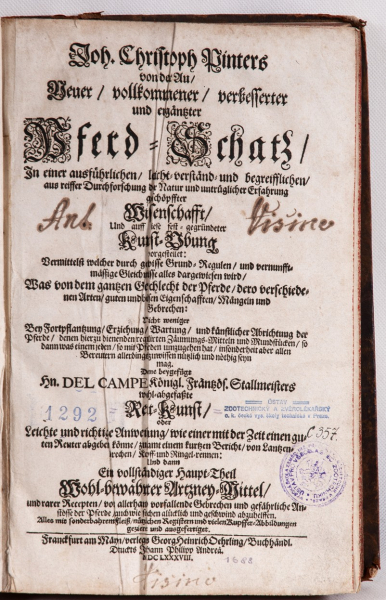 Joh. Christoph Pinters
von der Au/
Neuer/ vollkommener/ verbesserter
und ergäntzter
Pferd-Schatz/
In einer ausführlichen/ leicht-verständ- und begreifflichen/
aus reiffer Durchforschung der Natur und untrüglicher Erfahrung
geschöpffter
Wissenschafft/
Ant. Visino
Und auff jese fest-gegründeter
Kunst-Ubung
vorgestellet:
Vermittelst welcher durch gewisse Grund-Regulen/ und vernunfft-
mässige Gleichnisse alles dargewiesen wird/
Was von dem gantzen Geschlecht der Pferde/ dero verschiede-
nen Arten/ guten und bösen Eigenschafften/ Mängeln und
Gebrechen:
Nicht weniger
Bey Fortpflantzung/ Erziehung/ Wartung/ und künstlicher Abrichtung der
Pferde/ denen hierzu dienenden Zäumungs-Mitteln und Mundstücken/ so
dann was einem jeden/ so mit Pferden umzugehen hat/ insonderheit aber allen
Bereutern allerdings zu wissen nützlich und nöthig seyn
mag.
Deme beygefügt
Hn. DEL CAMPE Königl. Frantzös. Stallmeisters
wohl-abgefaßte
1292
Reit-Kunst/
ÚSTAV
ZOOTECHNICKÝ A
v Praze.
oder
Leichte und richtige Anweisung/ wie einer mit der Zeit einen gu-
C 957.
ten Reuter abgeben könne/ samt einem kurtzen Bericht/ von Lantzen-
brechen/ Kopff- und Ringel-rennen:
Und dann
Ein vollständiger Haupt-Theil
Wohl-bewährter Artzney-Mittel/
und rarer Recepten/ vor allerhand vorfallende Gebrechen und gefährliche An-
stösse der Pferde/ auch wie solchen glücklich und geschwind abzuhelffen.
Alles mit sonderbahrem Fleiß/ nützlichen Registern und vielen Kupffer-Abbildungen
gezieret und ausgefertiget.
Franckfurt am Mayn/ verlegts Georg Heinrich Oehrling/ Buchhändl.
Druckts Johann Philipp Andreä.
MDCLXXXVIII.
1688
Visino